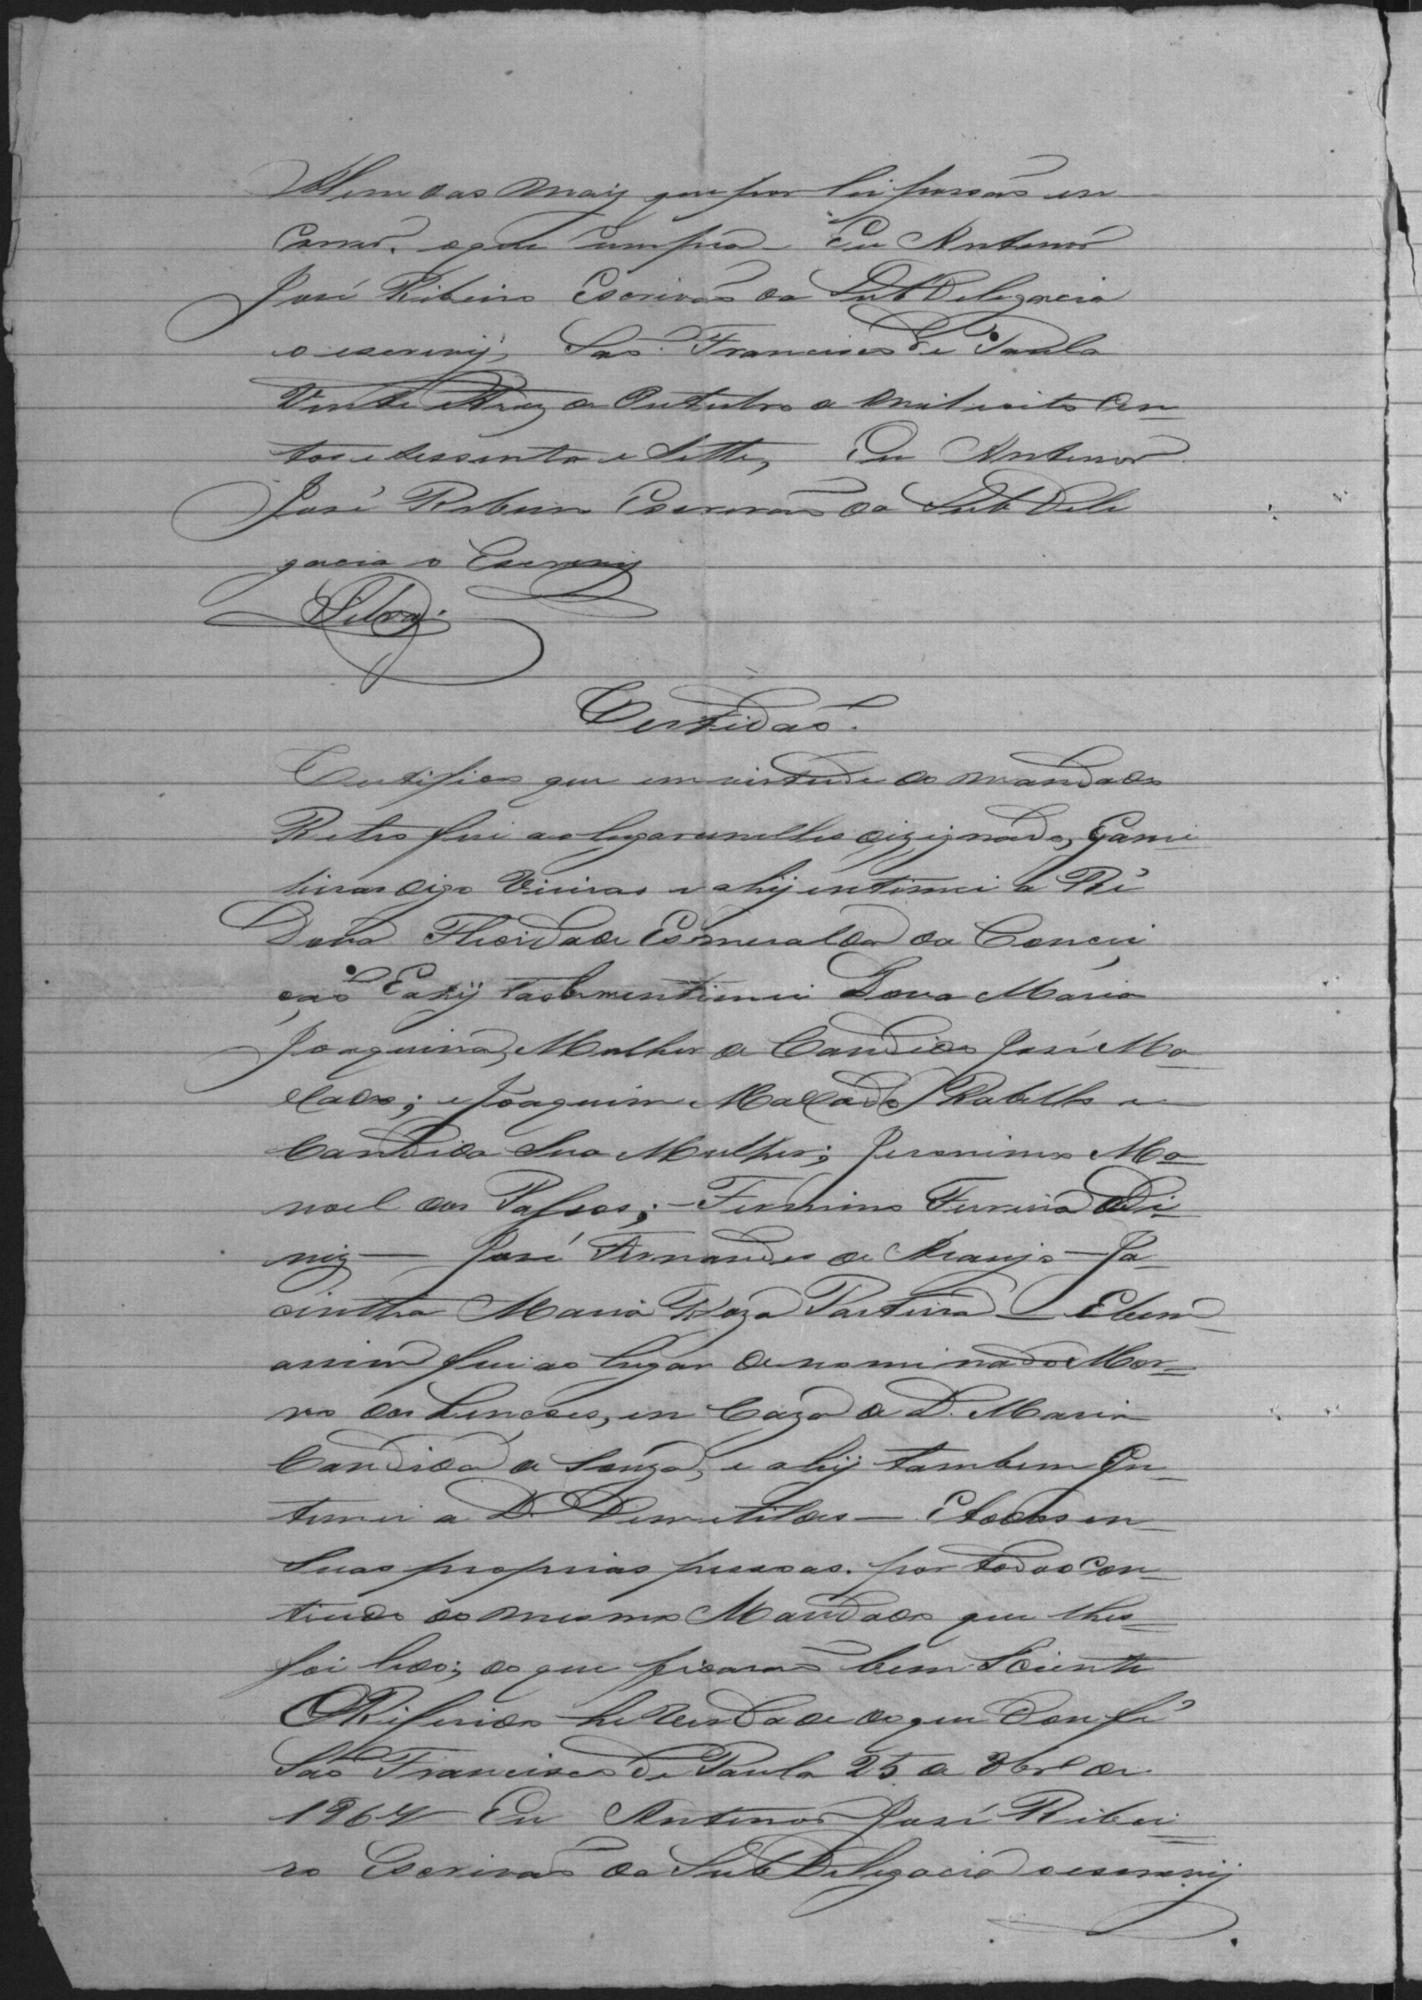 Alem das mais que por lei possaõ en
correr. o que cumpra - Eu Antenor
José Ribeiro Escrivaõ da SubDelegacia
o escrevij, Saõ Francisco de Paula
Vinte tres de Outubro de mil oito cen
tos e sessenta e sette, Eu Antenor
José Ribeiro Escrivaõ da Sub Dele
gacia o Escrevij
Silva.
Certidaõ.
Certifico que em virtude do mandado
Retro fui ao lugar nelle dezignado,
digo e ahij intimei a Ré
Dona Flicidade Esmeralda da Concei
çaõ E ahij taobem intimei Dona Maria
Joaquina, Mulher de Candido José Ma
xado; e Joaquim Maxado Rabello e
Candida Sua Mulher; Jeronimo Ma
noel dos Passos; - Firmino Ferreira Di
niz — José Fernandes de Araujo — Ja
cintha Maria Roza Parteira — E bem
assim fui ao lugar denominado Mor
ro dos em Caza de D. Maria
Candida de Souza, e ahij tambem In
timei a D. Dimitildes — E todos em
Suas proprias pessoas. por todo o Con
tiudo do mesmo Mandado que lhes
foi lido; do que ficaraõ bem Sciente
O Referido he Verdade do que Dou fé
Saõ Francisco de Paula 25 de 8brº de
1867 Eu Antenor José Ribei
ro Escrivaõ da SubDelegacia o escrevij